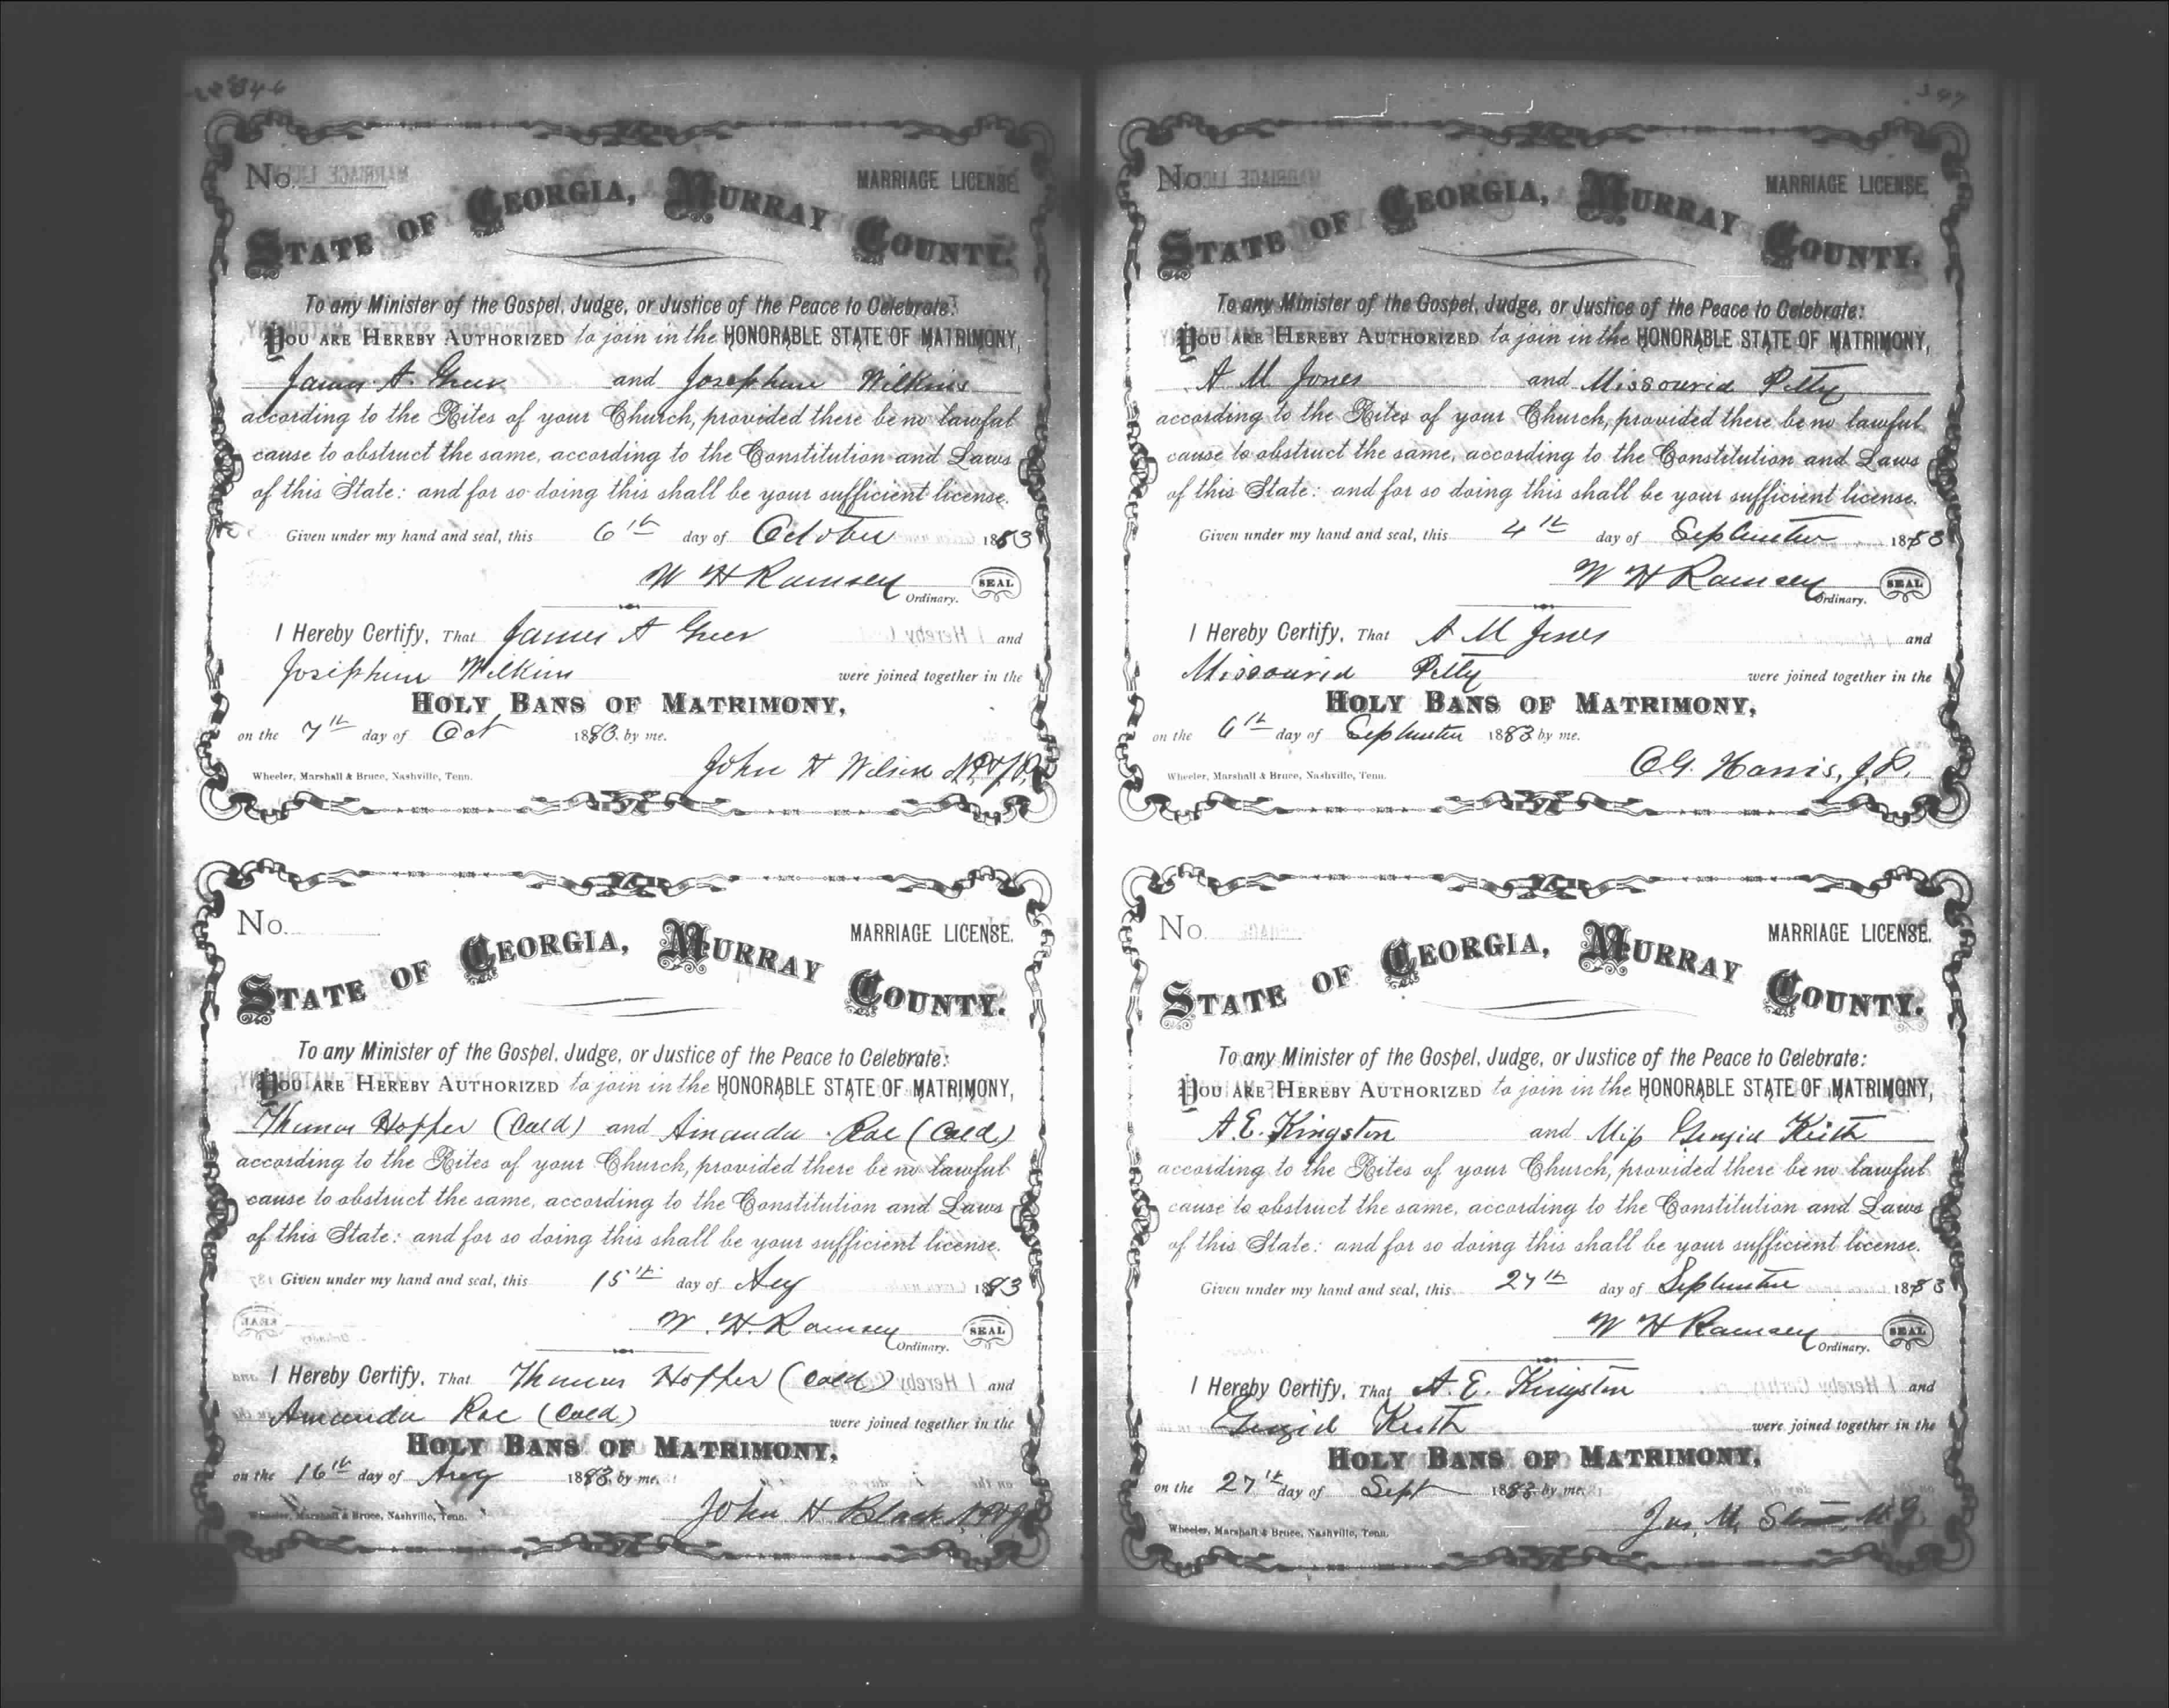 346
No. MARRIAGE LICENSE
STATE OF GEORGIA, MURRAY COUNTY.
To any Minister of the Gospel, Judge, or Justice of the Peace to Celebrate:
YOU ARE HEREBY AUTHORIZED to join in the HONORABLE STATE OF MATRIMONY,
James A. Greer and Josephine Wilkins
according to the Rites of your Church, provided there be no lawful
cause to obstruct the same, according to the Constitution and Laws
of this State: and for so doing this shall be your sufficient license.
Given under my hand and seal, this 6th day of October 1883
W H Ramsey SEAL
Ordinary.
I Hereby Certify, That James A Greer and
Josephine Wilkins were joined together in the
HOLY BANS OF MATRIMONY,
on the 7th day of Oct 1883. by me.
John H N.P. & J.P.
Wheeler, Marshall & Bruce, Nashville, Tenn.
No. MARRIAGE LICENSE.
STATE OF GEORGIA, MURRAY COUNTY.
To any Minister of the Gospel, Judge, or Justice of the Peace to Celebrate:
YOU ARE HEREBY AUTHORIZED to join in the HONORABLE STATE OF MATRIMONY,
Thomas Hopper (Cold) and Amanda Roe (Cold)
according to the Rites of your Church, provided there be no lawful
cause to obstruct the same, according to the Constitution and Laws
of this State: and for so doing this shall be your sufficient license.
Given under my hand and seal, this 15th day of Aug 1883
W. H. Ramsey SEAL
Ordinary.
I Hereby Certify, That Thomas Hopper (Cold) and
Amanda Roe (Cold) were joined together in the
HOLY BANS OF MATRIMONY,
on the 16th day of Aug 1883. by me.
John H Black
Wheeler, Marshall & Bruce, Nashville, Tenn.
347
No. MARRIAGE LICENSE.
STATE OF GEORGIA, MURRAY COUNTY.
To any Minister of the Gospel, Judge, or Justice of the Peace to Celebrate:
YOU ARE HEREBY AUTHORIZED to join in the HONORABLE STATE OF MATRIMONY,
A M Jones and Missourid Petty
according to the Rites of your Church, provided there be no lawful
cause to obstruct the same, according to the Constitution and Laws
of this State: and for so doing this shall be your sufficient license.
Given under my hand and seal, this 4th day of September 1883
W H Ramsey SEAL
Ordinary.
I Hereby Certify, That A M Jones and
Missourid Petty were joined together in the
HOLY BANS OF MATRIMONY,
on the 6th day of September 1883 by me.
C.G. Harris, J.P.
Wheeler, Marshall & Bruce, Nashville, Tenn.
No. MARRIAGE LICENSE.
STATE OF GEORGIA, MURRAY COUNTY.
To any Minister of the Gospel, Judge, or Justice of the Peace to Celebrate:
YOU ARE HEREBY AUTHORIZED to join in the HONORABLE STATE OF MATRIMONY,
A. E. Kingston and Miss Keith
according to the Rites of your Church, provided there be no lawful
cause to obstruct the same, according to the Constitution and Laws
of this State: and for so doing this shall be your sufficient license.
Given under my hand and seal, this 27th day of September 1883
W H Ramsey SEAL
Ordinary.
I Hereby Certify, That A. E. Kingston and
Keith were joined together in the
HOLY BANS OF MATRIMONY,
on the 27th day of Sept 1883. by me.
Jas. M. M.G.
Wheeler, Marshall & Bruce, Nashville, Tenn.